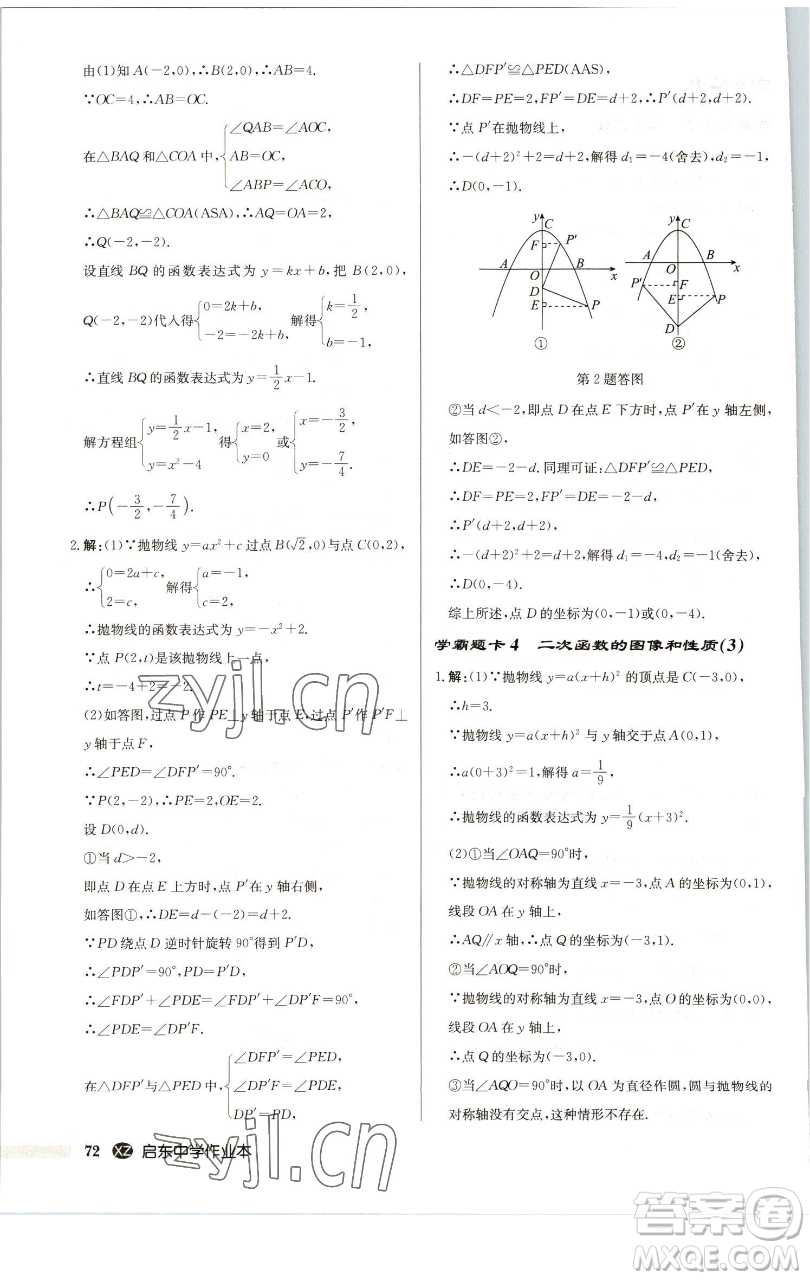 由(1)知 A(-2,0),∴B(2,0),∴AB=4.
∵OC=4,∴AB=OC.
在△BAQ 和△COA 中,{∠QAB=∠AOC,
AB=OC,
∠ABP=∠ACO,
∴△BAQ≌△COA(ASA),∴AQ=OA=2,
∴Q(-2,-2).
设直线 BQ 的函数表达式为 y=kx+b,把 B(2,0),
Q(-2,-2)代人得{0=2k+b, -2=-2k+b, 解得{k=1/2, b=-1,
∴直线 BQ 的函数表达式为 y=1/2x-1.
解方程组{y=1/2x-1, y=x²-4 得{x=2, y=0 或{x=-3/2, y=-7/4.
∴P(-3/2,-7/4).
2.解:(1)∵抛物线 y=ax²+c 过点 B(√2,0)与点 C(0,2),
∴{0=2a+c, 2=c, 解得{a=-1, c=2,
∴抛物线的函数表达式为 y=-x²+2.
∵点 P(2,t)是该抛物线上的点,
∴t=-4+2=-2.
(2)如答图,过点 P 作 PE⊥y 轴于点 E,过点 P′作 P′F⊥
y 轴于点 F,
∴∠PED=∠DFP′=90°.
∵P(2,-2),∴PE=2,OE=2.
设 D(0,d).
①当 d>-2,
即点 D 在点 E 上方时,点 P′在 y 轴右侧,
如答图①,∴DE=d-(-2)=d+2.
∵PD 绕点 D 逆时针旋转 90°得到 P′D,
∴∠PDP′=90°,P′D=PD,
∴∠FDP′+∠PDE=∠FDP′+∠DP′F=90°,
∴∠PDE=∠DP′F.
在△DFP′与△PED 中,{∠DFP′=∠PED,
∠DP′F=∠PDE,
DP′=PD,
∴△DFP′≌△PED(AAS),
∴DF=PE=2,FP′=DE=d+2,∴P′(d+2,d+2).
∵点 P′在抛物线上,
∴-(d+2)²+2=d+2,解得 d₁=-4(舍去),d₂=-1,
∴D(0,-1).
y C F P′ A O B x D E P ①
y C A O B x P′ F E P D ②
第 2 题答图
②当 d<-2,即点 D 在点 E 下方时,点 P′在 y 轴左侧,
如答图②,
∴DE=-2-d.同理可证:△DFP′≌△PED,
∴DF=PE=2,FP′=DE=-2-d,
∴P′(d+2,d+2),
∴-(d+2)²+2=d+2,解得 d₁=-4,d₂=-1(舍去),
∴D(0,-4).
综上所述,点 D 的坐标为(0,-1)或(0,-4).
学霸题卡 4 二次函数的图像和性质(3)
1.解:(1)∵抛物线 y=a(x+h)² 的顶点是 C(-3,0),
∴h=3.
∵抛物线 y=a(x+h)² 与 y 轴交于点 A(0,1),
∴a(0+3)²=1,解得 a=1/9,
∴抛物线的函数表达式为 y=1/9(x+3)².
(2)①当∠OAQ=90°时,
∵抛物线的对称轴为直线 x=-3,点 A 的坐标为(0,1),
线段 OA 在 y 轴上,
∴AQ∥x 轴,∴点 Q 的坐标为(-3,1).
②当∠AOQ=90°时,
∵抛物线的对称轴为直线 x=-3,点 O 的坐标为(0,0),
线段 OA 在 y 轴上,
∴点 Q 的坐标为(-3,0).
③当∠AQO=90°时,以 OA 为直径作圆,圆与抛物线的
对称轴没有交点,这种情形不存在.
72 XZ 启东中学作业本
zyjl.cn
zyjl.cn
答案圈
MXQE.COM